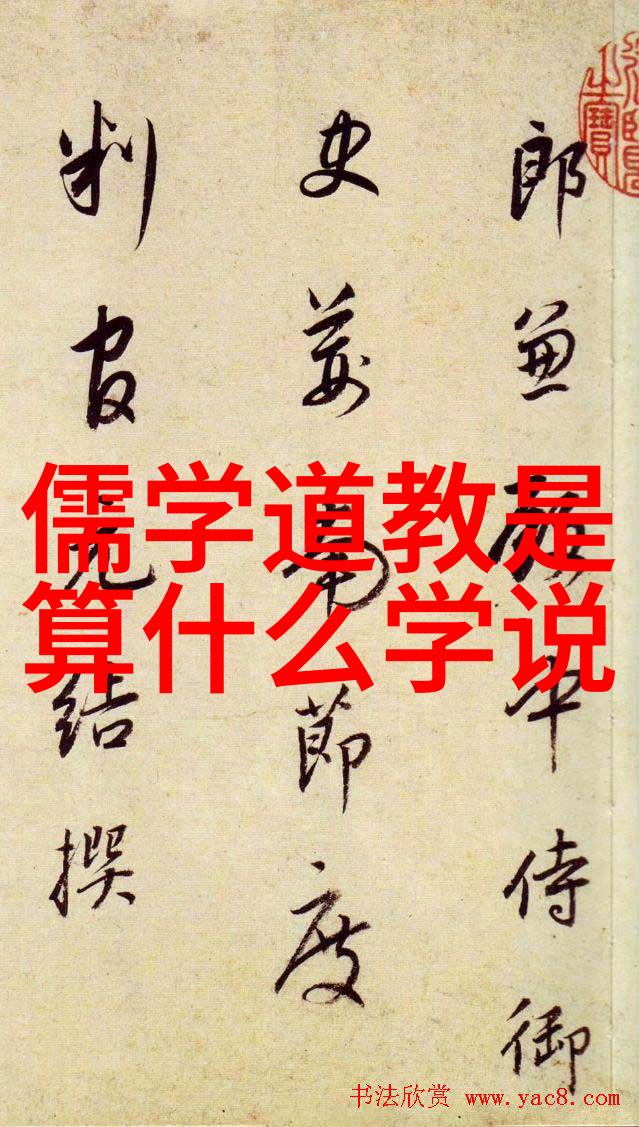 郎兼殿中侍御
史荆南節度
判官元結撰
儒学道教是
算什么学说
书法欣赏 www.yac8.com